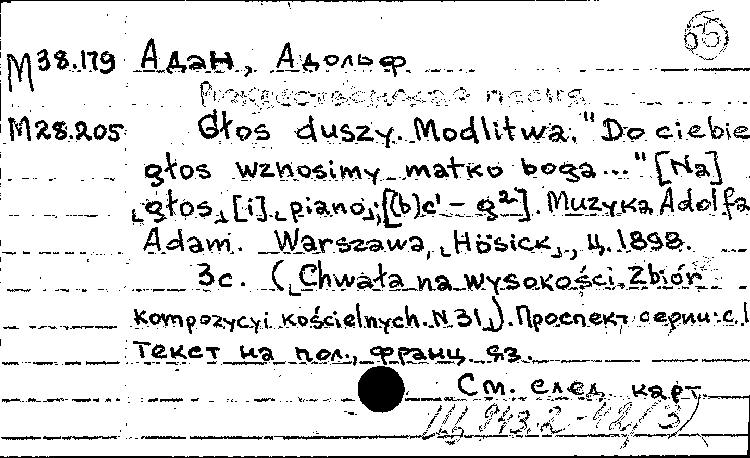 55
М38.179 Адан, Адольф
Рождественская песня
М28.205 Głos duszy. Modlitwa. "Do ciebie
głos wznosimy matko boga..." [Na]
⌞głos⌟ [i] ⌞piano⌟; [(b)c¹ – g²]. Muzyka Adolfa
Adam. Warszawa, ⌞Hösick⌟, ц. 1898.
3с. (⌞Chwała na wysokości. Zbiór
kompozycyi kościelnych. N.31⌟). Проспект серии: с.1
Текст на пол., франц. яз.
См. след. карт.
Щ 943.2-42/3)